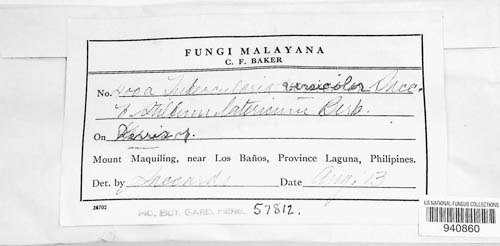 FUNGI MALAYANA
C. F. BAKER
No. Tubercularia versicolor Sacc.
& Stilbum lateritium Berk.
On Derris sp.
Mount Maquiling, near Los Baños, Province Laguna, Philipines.
Det. by Date Aug. 13
24702
MO. BOT. GARD. HERB. 57812.
US NATIONAL FUNGUS COLLECTIONS
940860